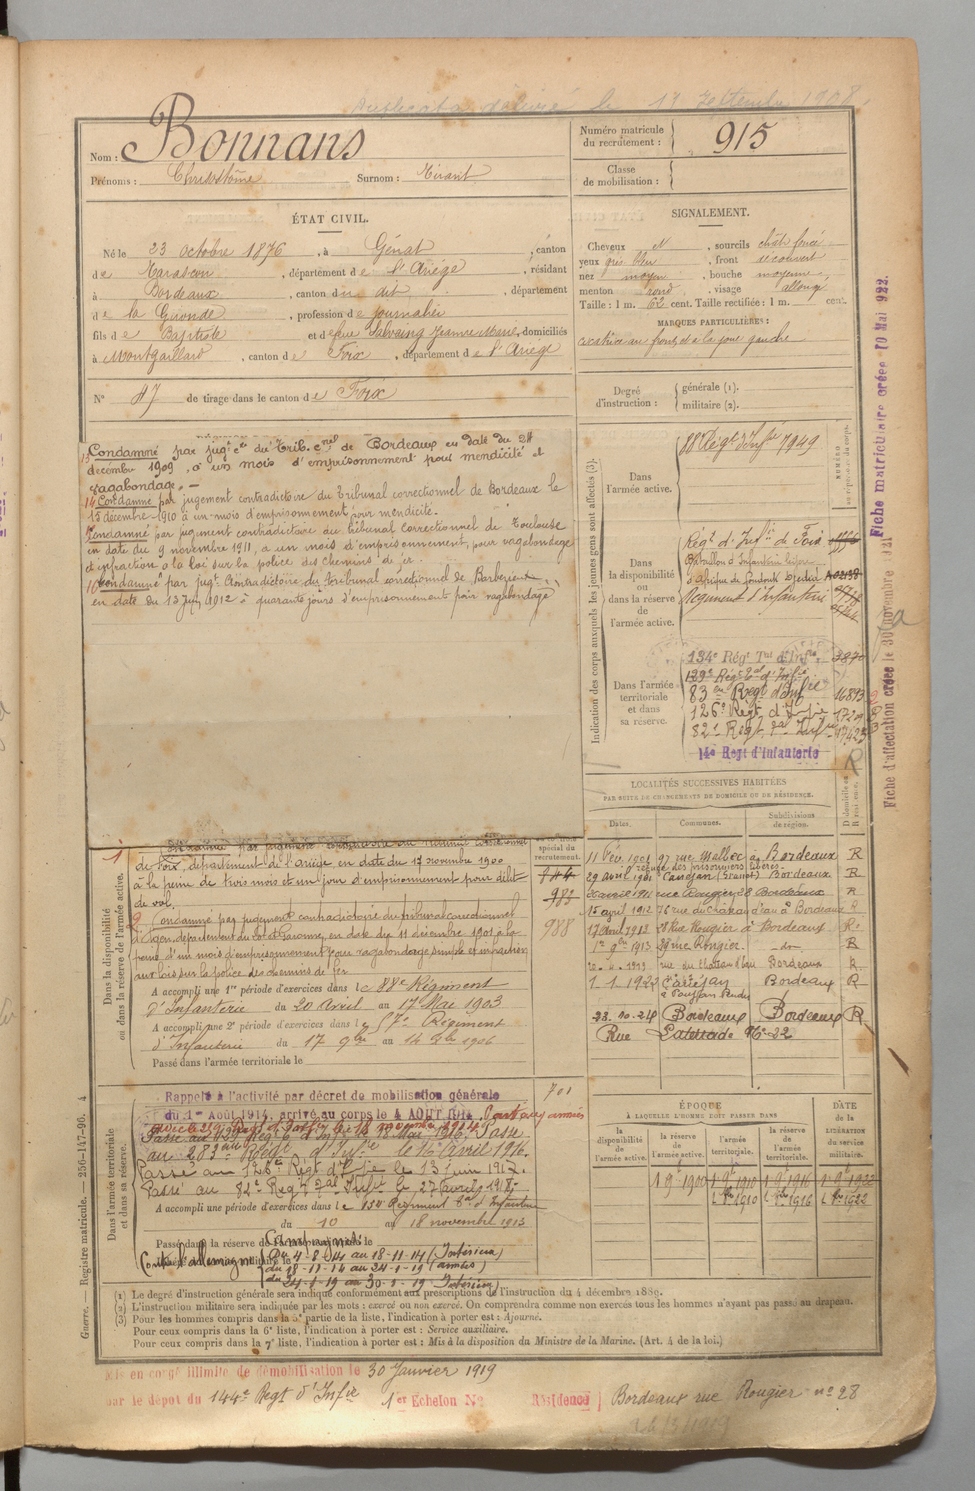 Duplicata délivré le 17 Septembre 1908
Nom : Bonnans
Prénoms : Chrisostôme Surnom : Tirant
Numéro matricule du recrutement : 915
Classe de mobilisation :
ÉTAT CIVIL.
Né le 23 octobre 1876, à Génat, canton
de Tarascon, département de l'Ariège, résidant
à Bordeaux, canton du dit, département
de la Gironde, profession de journalier
fils de Baptiste et de feue Salvaing Jeanne Marie, domiciliés
à Montgaillard, canton de Foix, département de l'Ariège
N° 47 de tirage dans le canton de Foix
SIGNALEMENT.
Cheveux et sourcils chât. foncé
yeux gris bleu, front découvert
nez moyen, bouche moyenne,
menton rond, visage allongé
Taille : 1 m. 62 cent. Taille rectifiée : 1 m. cent.
MARQUES PARTICULIÈRES :
cicatrice au front et à la joue gauche
Degré d'instruction : générale (1).
militaire (2).
Condamné par jugt ce du Trib. cnel de Bordeaux en date du 24
décembre 1909, à un mois d'emprisonnement pour mendicité et
vagabondage. —
14 Condamné par jugement contradictoire du Tribunal correctionnel de Bordeaux le
15 décembre 1910 à un mois d'emprisonnement pour mendicité.
Condamné par jugement contradictoire du tribunal correctionnel de Toulouse
en date du 9 novembre 1911, à un mois d'emprisonnement, pour vagabondage
et infraction à la loi sur la police des chemins de fer.
Condamné par jugt Contradictoire du tribunal correctionnel de Barbezieux
en date du 13 Juin 1912 à quarante jours d'emprisonnement pour vagabondage
Indication des corps auxquels les jeunes gens sont affectés (3).
Dans l'armée active.
88e Régt d'Infie 7949
Dans la disponibilité ou dans la réserve de l'armée active.
Régt d'Infie de Foix
Bataillon d'Infanterie légère
d'Afrique
Régiment d'Infanterie
Dans l'armée territoriale et dans sa réserve.
134e Régt Tal d'Infie 3870
129e Régt Tal d'Infie
83 Regt d'Infie 16893
126e Regt d'Infie
82e Régt Tal Infie
14e Regt d'Infanterie
Fiche matriculaire créée 10 Mai 922.
Fiche d'affectation créée le 30 novembre 1921
LOCALITÉS SUCCESSIVES HABITÉES
PAR SUITE DE CHANGEMENTS DE DOMICILE OU DE RÉSIDENCE.
Dates. Communes. Subdivisions de région.
11 Fév. 1901 97 rue Malbec à Bordeaux R
refuge des prisonniers libérés
29 avril 1901 Canéjan (Gironde) Bordeaux R
avril 1911 rue Rougier 28 Bordeaux R
15 avril 1912 76 rue du Château d'eau à Bordeaux R
17 1913 28 Rue Rougier à Bordeaux R
1er 9bre 1913 rue Rougier. do R
rue du Château d'Eau Bordeaux R
1 1 1922 Canéjan Bordeaux R
23. 10. 24 Bordeaux Bordeaux R
Rue N° 22
spécial du recrutement.
982
988
Dans la disponibilité ou dans la réserve de l'armée active.
de Foix, département de l'Ariège, en date du 17 novembre 1900
à la peine de trois mois et un jour d'emprisonnement pour délit
de vol.
Condamné par jugement contradictoire du tribunal correctionnel
d'Agen, département du Lot et Garonne, en date du 11 décembre 1901 à la
peine d'un mois d'emprisonnement pour vagabondage simple et infraction
aux lois sur la police des chemins de fer
A accompli une 1re période d'exercices dans le 88e Régiment
d'Infanterie du 20 Avril au 17 Mai 1903
A accompli une 2e période d'exercices dans le 57e Régiment
d'Infanterie du 17 9bre au 14 Xbre 1906
Passé dans l'armée territoriale le
Dans l'armée territoriale et dans sa réserve.
701
Rappelé à l'activité par décret de mobilisation générale
du 1er Août 1914, arrivé au corps le 4 AOUT 1914. Parti aux armées
le 18 novembre 1914
Passé au 129e Régt Tal d'Infie le 18 Mai 1916. Passé
au 283me Régt d'Infie le 16 Avril 1916.
Passé au 126e Régt d'Infie le 13 Juin 1917.
Passé au 82e Régt Tal Infie le 27 avril 1918.
A accompli une période d'exercices dans le 134e Régiment Tal d'Infanterie
du 10 au 18 novembre 1913
Passé dans la réserve de l'armée territoriale le
Campagnes :
Contre l'Allemagne
Du 4-8-14 au 18-11-14 (Intérieur)
du 18-11-14 au 24-1-19 (armées)
du 24-1-19 au 30-1-19 Intérieur)
ÉPOQUE
À LAQUELLE L'HOMME DOIT PASSER DANS
la disponibilité de l'armée active. la réserve de l'armée active. l'armée territoriale. la réserve de l'armée territoriale.
DATE de la LIBÉRATION du service militaire.
1 9bre 1900 1 9bre 1910 1 9bre 1916 1 9bre 1922
1910 1916 1922
(1) Le degré d'instruction générale sera indiqué conformément aux prescriptions de l'instruction du 4 décembre 1889.
(2) L'instruction militaire sera indiquée par les mots : exercé ou non exercé. On comprendra comme non exercés tous les hommes n'ayant pas passé au drapeau.
(3) Pour les hommes compris dans la 5e partie de la liste, l'indication à porter est : Ajourné.
Pour ceux compris dans la 6e liste, l'indication à porter est : Service auxiliaire.
Pour ceux compris dans la 7e liste, l'indication à porter est : Mis à la disposition du Ministre de la Marine. (Art. 4 de la loi.)
Guerre. — Registre matricule. — 256-147-96. 4
Mis en congé illimité de démobilisation le 30 Janvier 1919
par le dépôt du 144e Regt d'Infie 1er Echelon N° Résidence Bordeaux rue Rougier n° 28